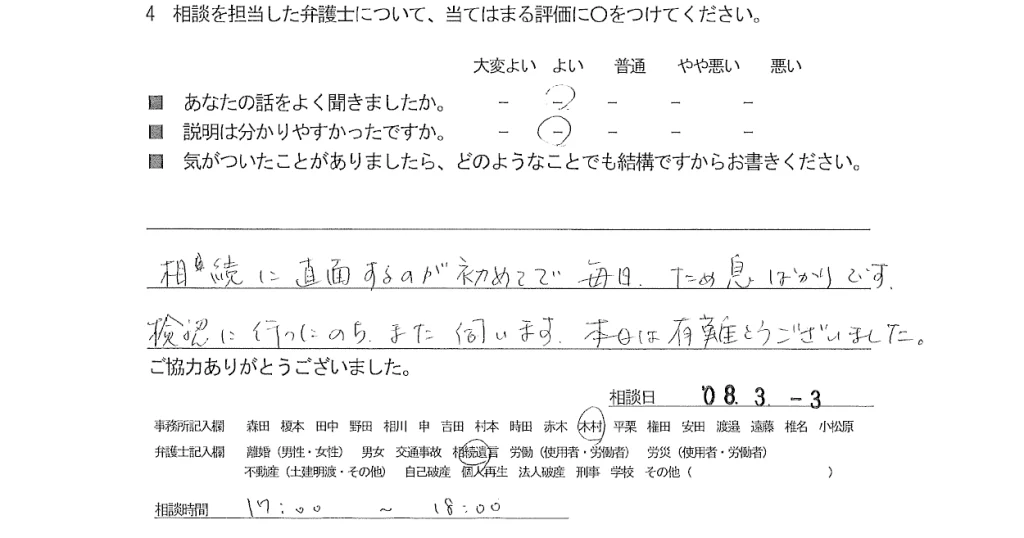 4 相談を担当した弁護士について、当てはまる評価に〇をつけてください。
大変よい よい 普通 やや悪い 悪い
■ あなたの話をよく聞きましたか。 － － － － －
■ 説明は分かりやすかったですか。 － － － － －
■ 気がついたことがありましたら、どのようなことでも結構ですからお書きください。
相続に直面するのが初めてで毎日、ため息ばかりです。
検認に行ったのち、また伺います。本日は有難とうございました。
ご協力ありがとうございました。
相談日 '08. 3. -3
事務所記入欄 森田 榎本 田中 野田 相川 申 吉田 村本 時田 赤木 木村 平栗 権田 安田 渡邉 遠藤 椎名 小松原
弁護士記入欄 離婚（男性・女性） 男女 交通事故 相続遺言 労働（使用者・労働者） 労災（使用者・労働者）
不動産（土建明渡・その他） 自己破産 個人再生 法人破産 刑事 学校 その他（ ）
相談時間 17:00 ～ 18:00